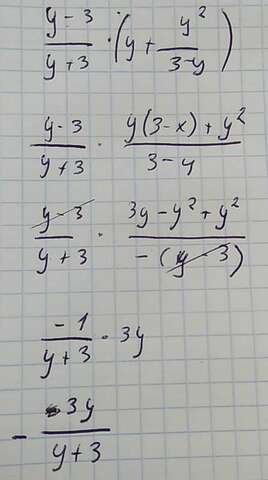 (y-3)/(y+3) · (y + y²/(3-y))
(y-3)/(y+3) · (y(3-x)+y²)/(3-y)
(y-3)/(y+3) · (3y-y²+y²)/(-(y-3))
(-1)/(y+3) · 3y
- (3y)/(y+3)